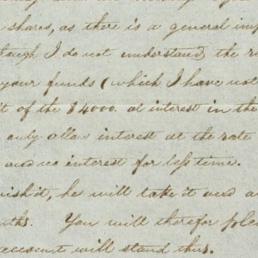 shares, as there is a general
though I do not understand the
your funds (which I have not
of the $4000. at interest in the
only allow interest at the rate
and no interest for less time.
he will take it and
You will therefor
account will stand thus.